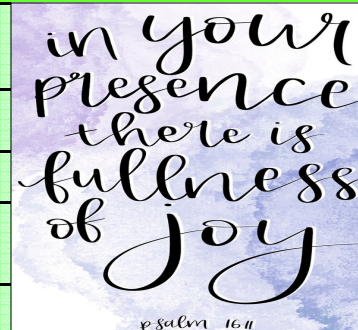 in your
presence
there is
fullness
of joy
psalm 16 11